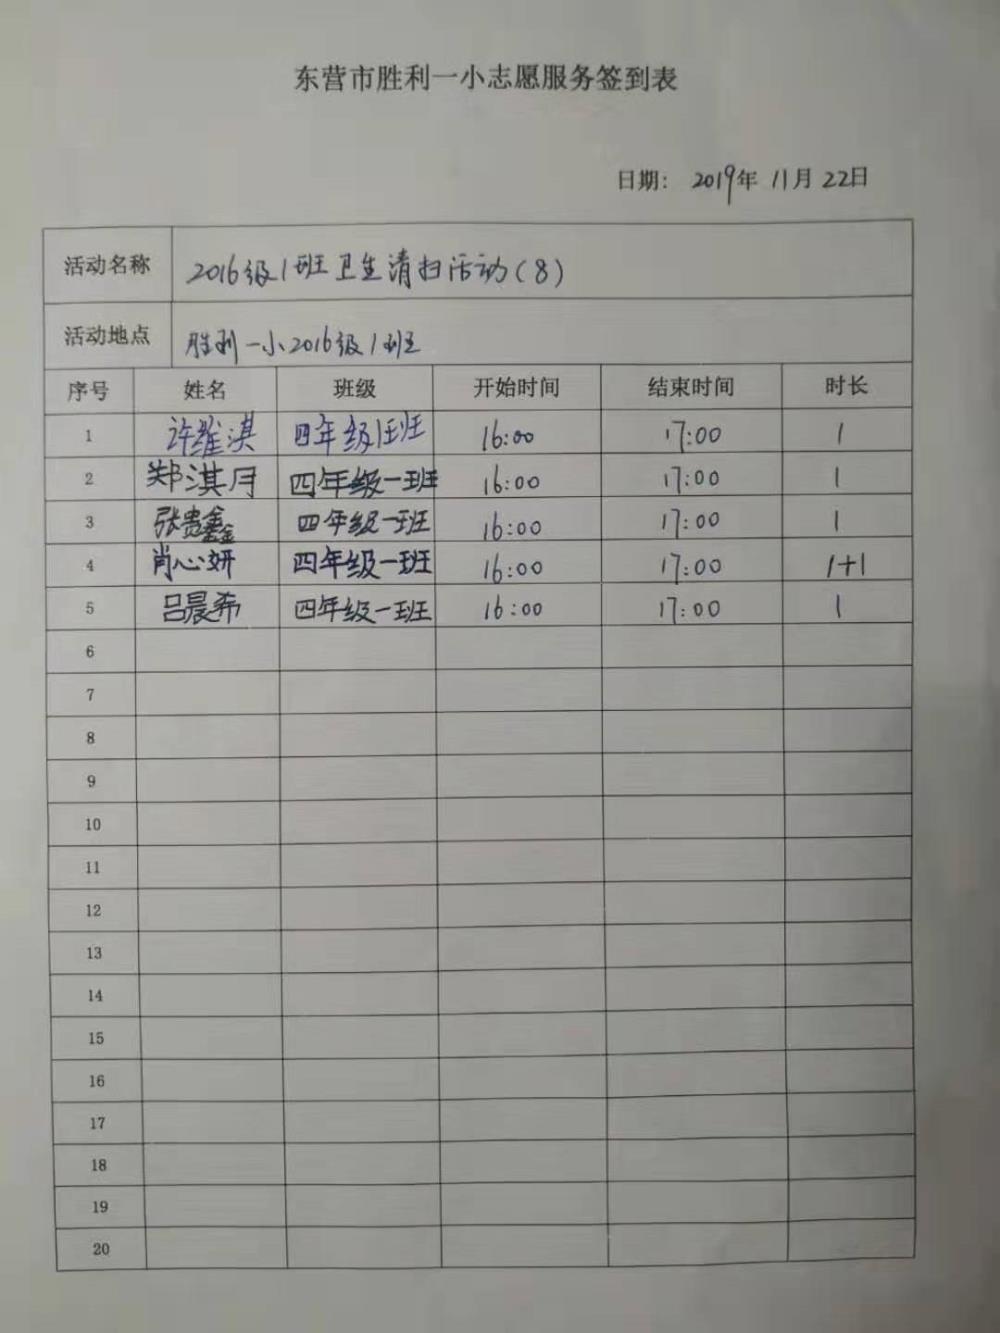 东营市胜利一小志愿服务签到表
日期: 2019年 11月 22日
活动名称 2016级1班卫生清扫活动(8)
活动地点 胜利一小2016级1班
序号 姓名 班级 开始时间 结束时间 时长
1 许维淇 四年级1班 16:00 17:00 1
2 郑淇月 四年级一班 16:00 17:00 1
3 张贵鑫 四年级一班 16:00 17:00 1
4 肖心妍 四年级一班 16:00 17:00 1+1
5 吕晨希 四年级一班 16:00 17:00 1
6
7
8
9
10
11
12
13
14
15
16
17
18
19
20